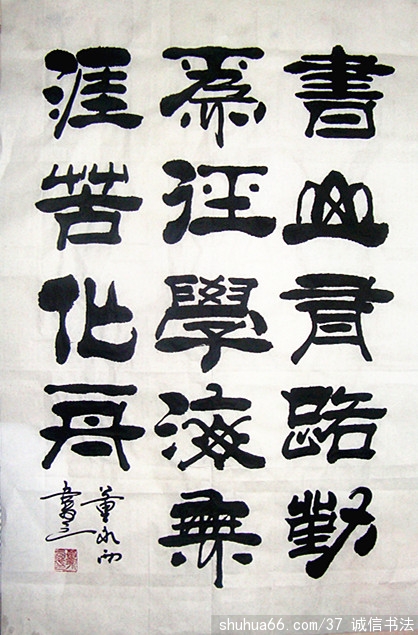 書山有路勤
爲徑學海無
涯苦作舟
shuhua66.com/37 诚信书法